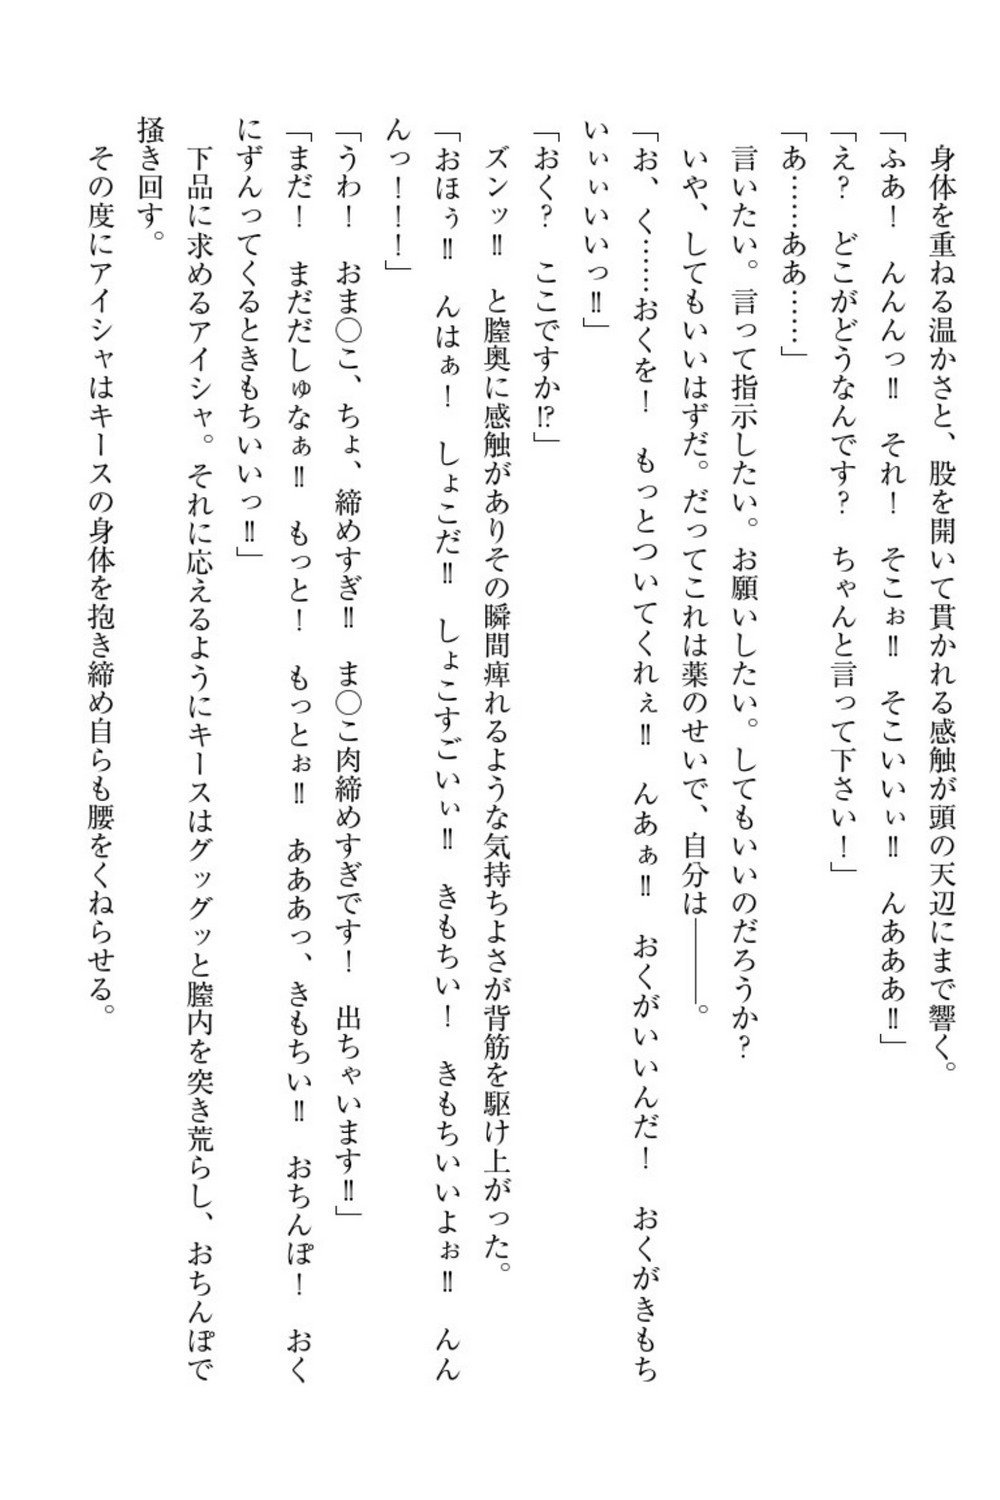 身体を重ねる温かさと、股を開いて貫かれる感触が頭の天辺にまで響く。
「ふあ！　んんんっ‼　それ！　そこぉ‼　そこいいぃ‼　んあああ‼」
「え？　どこがどうなんです？　ちゃんと言って下さい！」
「あ……ああ……」
言いたい。言って指示したい。お願いしたい。してもいいのだろうか？
いや、してもいいはずだ。だってこれは薬のせいで、自分は――。
「お、く……おくを！　もっとついてくれぇ‼　んあぁ‼　おくがいいんだ！　おくがきもち
いぃぃいいっ‼」
「おく？　ここですか⁉」
ズンッ‼　と膣奥に感触がありその瞬間痺れるような気持ちよさが背筋を駆け上がった。
「おほぅ‼　んはぁ！　しょこだ‼　しょこすごいぃ‼　きもちい！　きもちいいよぉ‼　んん
んっ！！！」
「うわ！　おま〇こ、ちょ、締めすぎ‼　ま〇こ肉締めすぎです！　出ちゃいます‼」
「まだ！　まだだしゅなぁ‼　もっと！　もっとぉ‼　あああっ、きもちい‼　おちんぽ！　おく
にずんってくるときもちいいっ‼」
下品に求めるアイシャ。それに応えるようにキースはグッグッと膣内を突き荒らし、おちんぽで
掻き回す。
その度にアイシャはキースの身体を抱き締め自らも腰をくねらせる。